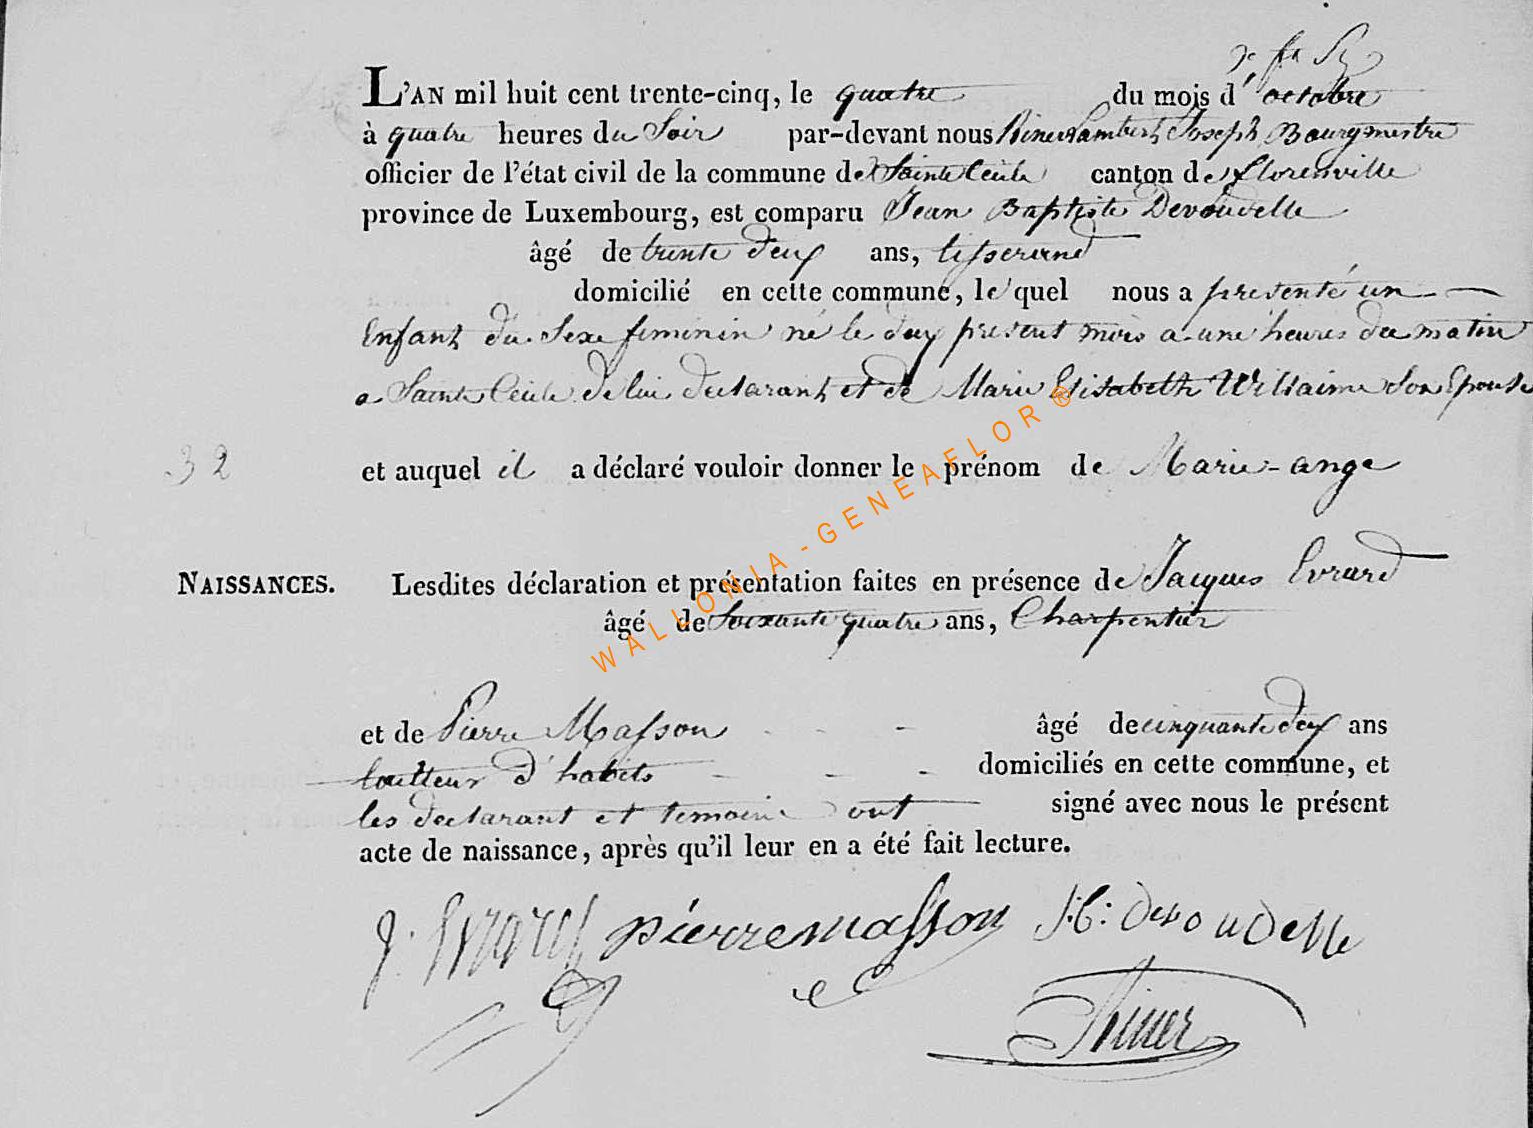 L'AN mil huit cent trente-cinq, le quatre du mois d'octobre
à quatre heures du Soir par-devant nous Riner Lambert Joseph Bourgmestre
officier de l'état civil de la commune de Sainte Cécile canton de florenville
province de Luxembourg, est comparu Jean Baptiste Devoudelle
âgé de trente deux ans, tisserand
domicilié en cette commune, le quel nous a présenté un
Enfant du Sexe féminin né le deux présent mois a une heures du matin
a Sainte Cécile de lui déclarant et de Marie Elisabeth Willaime Son Epouse
32 et auquel il a déclaré vouloir donner le prénom de Marie-ange
NAISSANCES. Lesdites déclaration et présentation faites en présence de Jacques Evrard
âgé de Soixante quatre ans, Charpentier
et de Pierre Masson âgé de cinquante deux ans
tailleur d'habits domiciliés en cette commune, et
les déclarant et temoins ont signé avec nous le présent
acte de naissance, après qu'il leur en a été fait lecture.
J. Evrard pierre masson devoudelle
Riner
WALLONIA-GENEAFLOR®